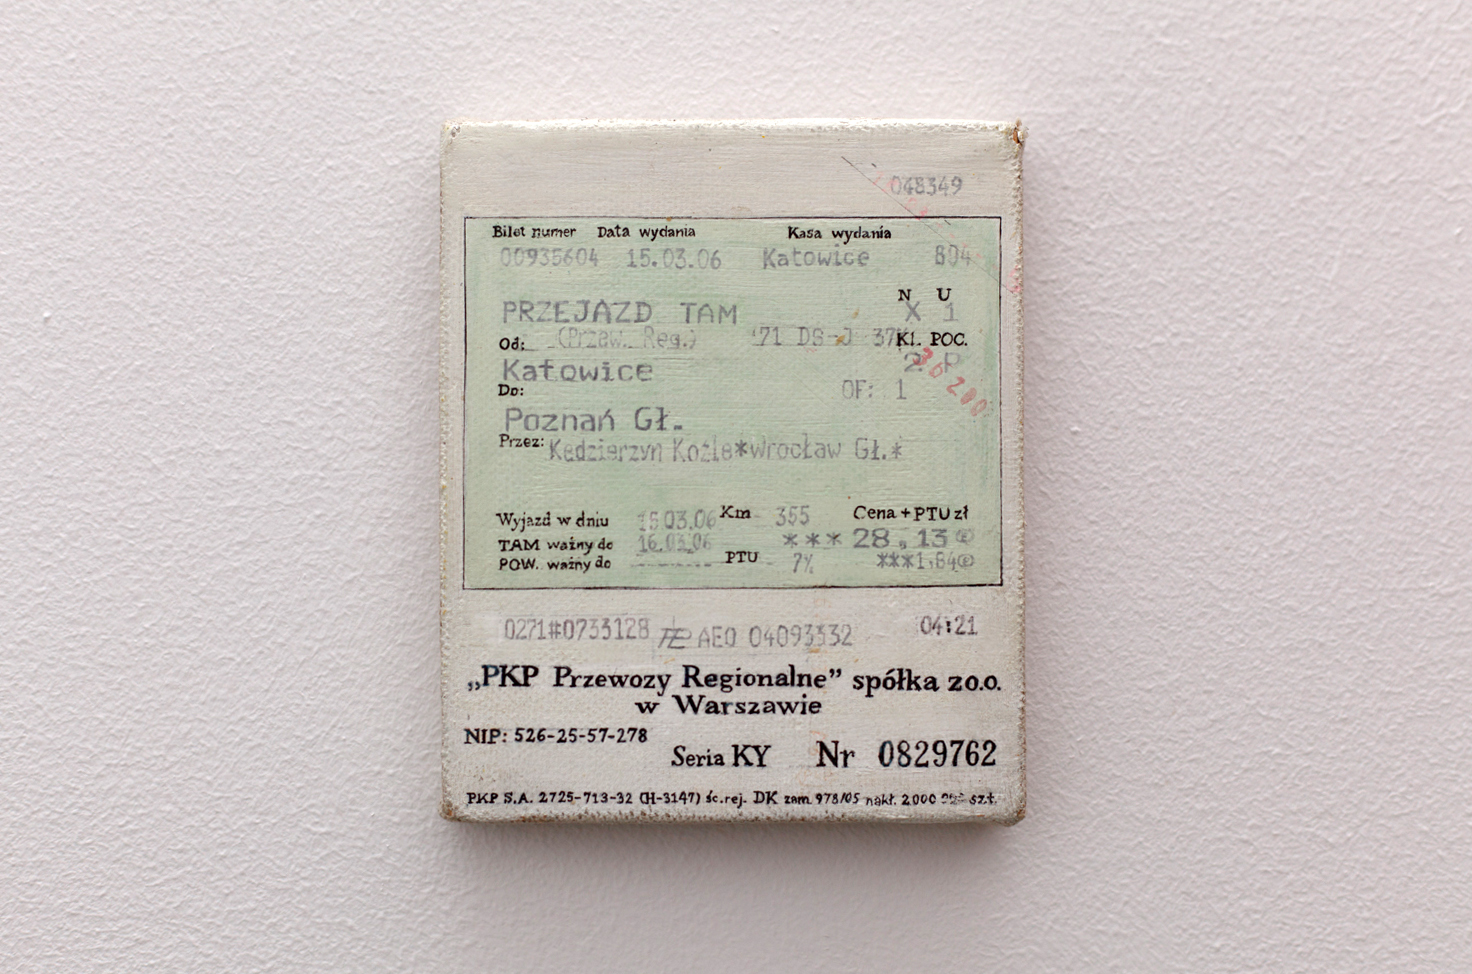 048349
Bilet numer Data wydania Kasa wydania
00935604 15.03.06 Katowice 804
N U
PRZEJAZD TAM X 1
(Przew. Reg.) '71 DS-J 37%
Od: Kl. POC.
Katowice 2 P
Do: OF: 1
Poznań Gł.
Przez: Kędzierzyn Koźle*Wrocław Gł.*
Wyjazd w dniu 15.03.06 Km 355 Cena + PTU zł
TAM ważny do 16.03.06 *** 28,13
POW. ważny do -------- PTU 7% ***1,84
0271#0733128 AEO 04093332 04:21
„PKP Przewozy Regionalne” spółka zo.o.
w Warszawie
NIP: 526-25-57-278
Seria KY Nr 0829762
PKP S.A. 2725-713-32 (H-3147) śc.rej. DK zam. 978/05 nakł. 2 000 szt.